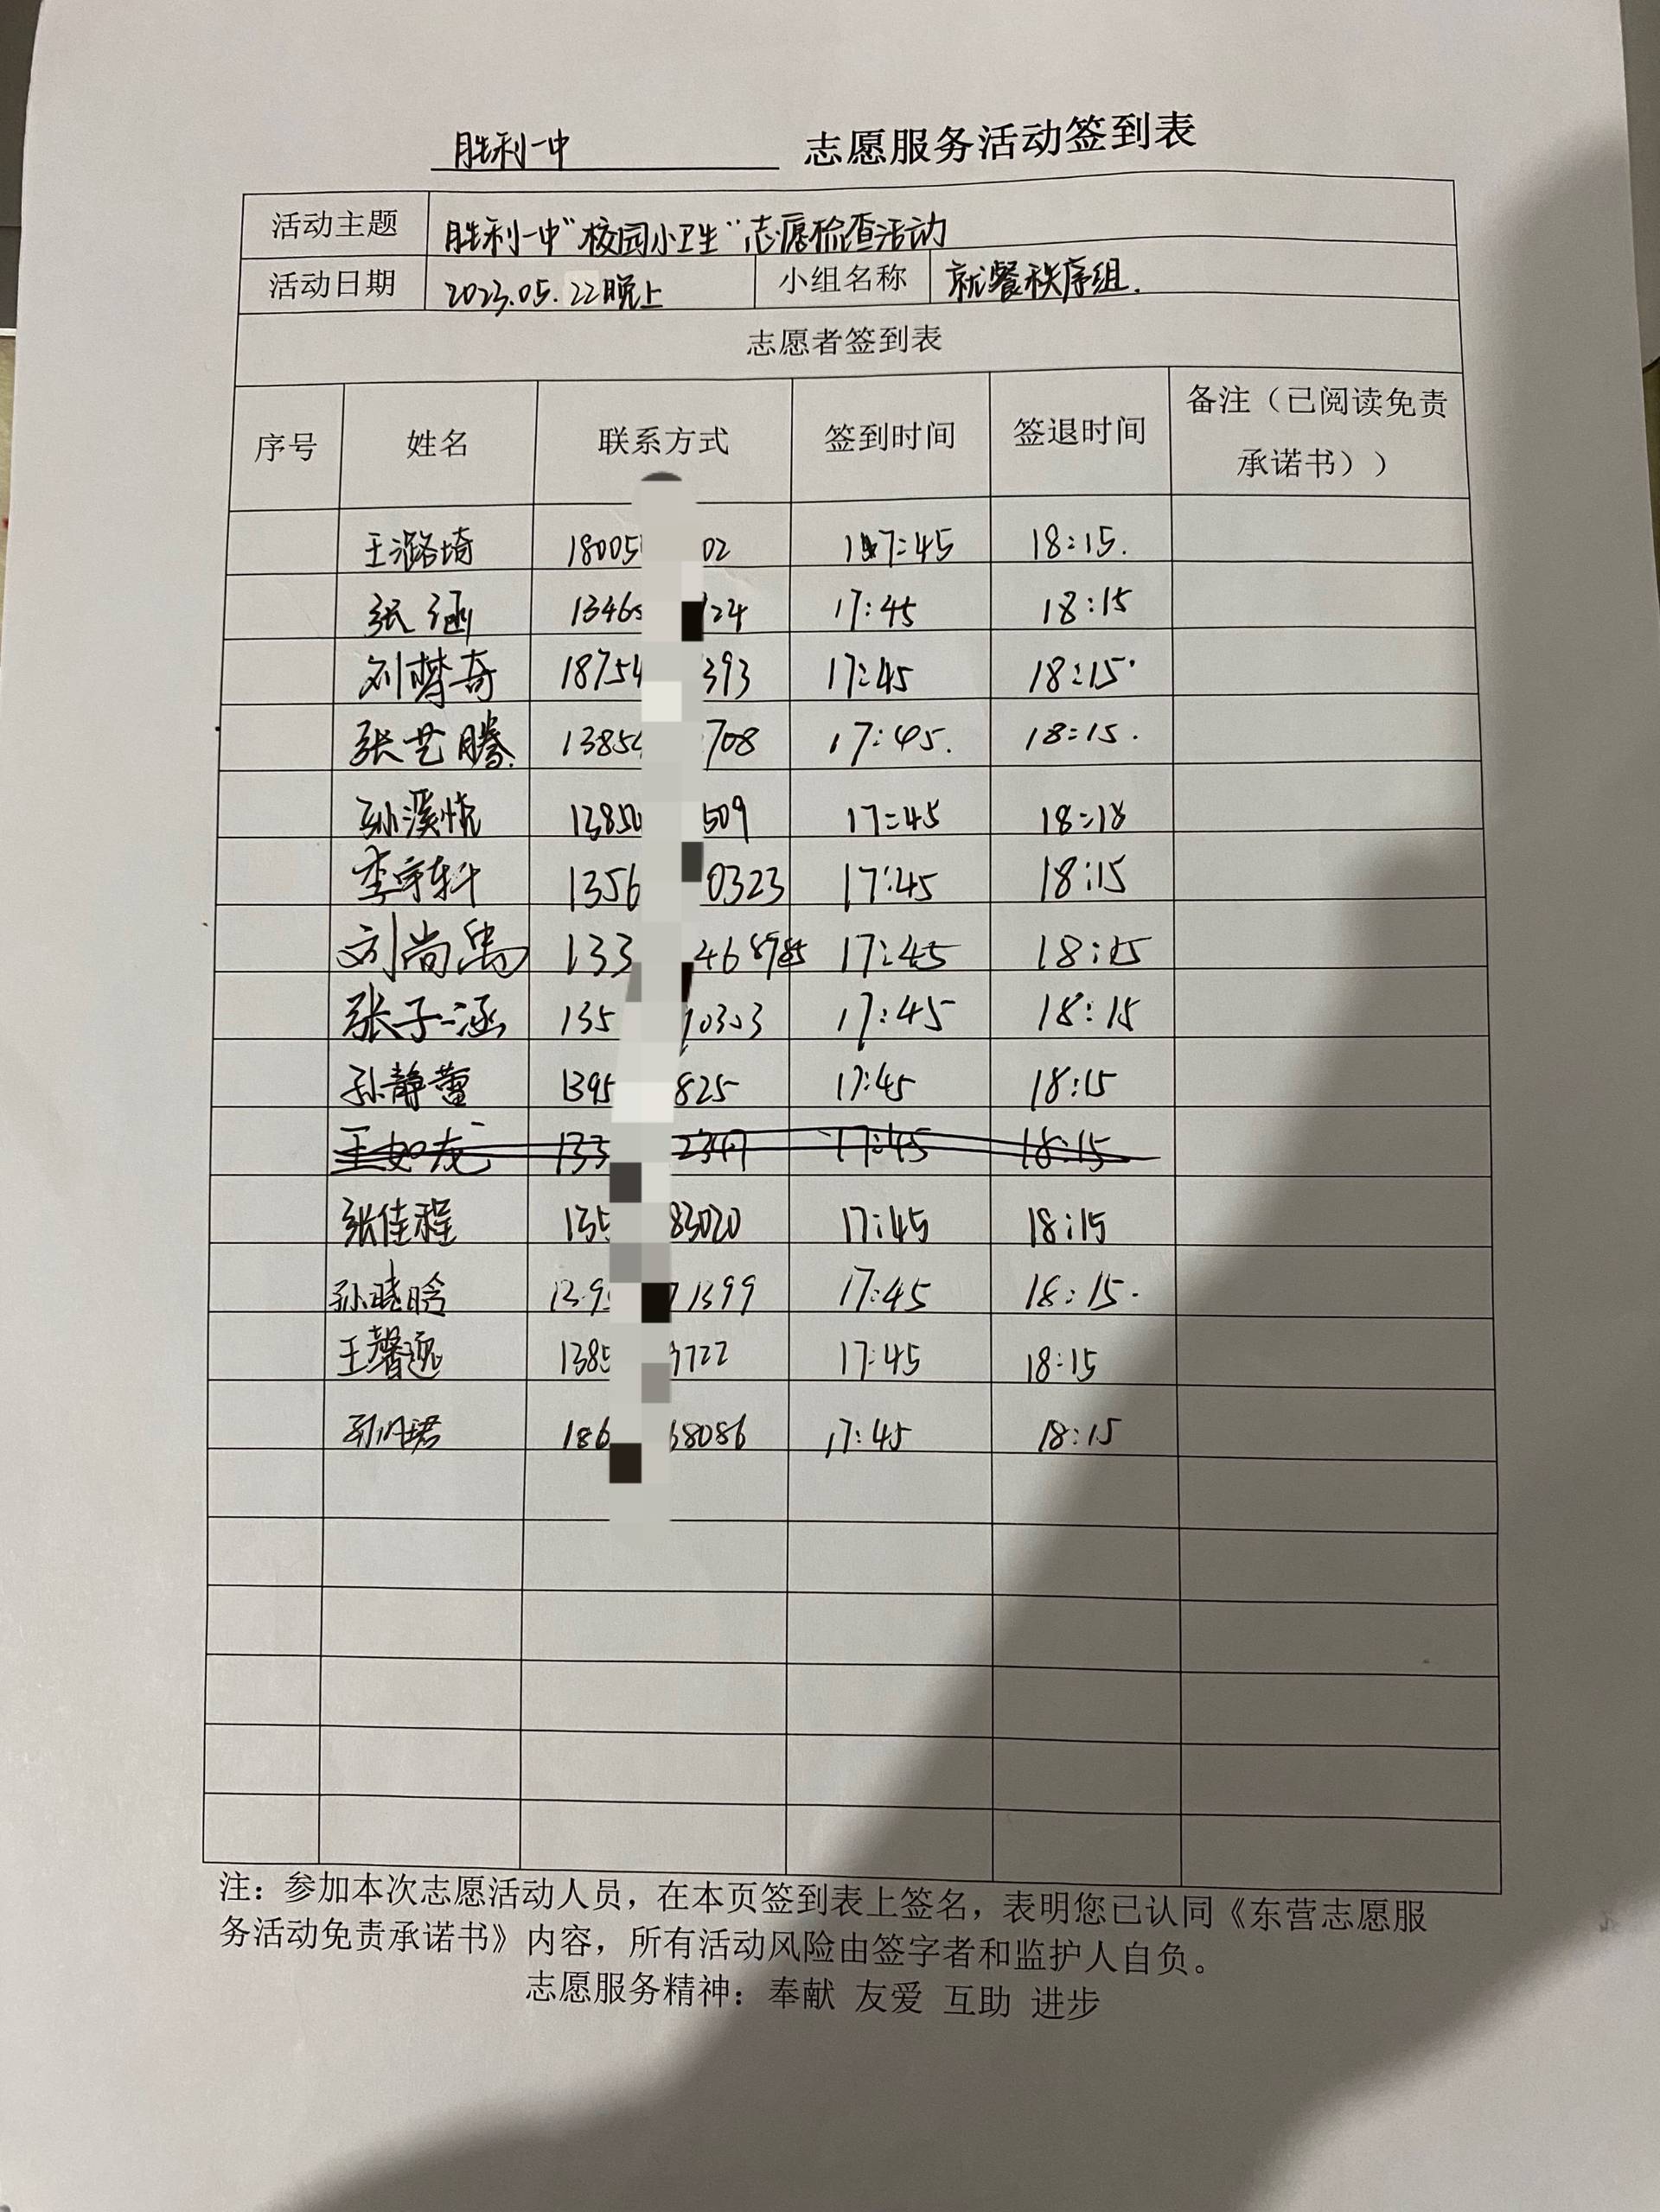 胜利一中 志愿服务活动签到表
活动主题 胜利一中"校园小卫生"志愿检查活动
活动日期 2023.05.22晚上 小组名称 就餐秩序组.
志愿者签到表
序号 姓名 联系方式 签到时间 签退时间 备注（已阅读免责承诺书））
王潞琦 18005 02 17:45 18:15.
张涵 1346 24 17:45 18:15
刘梦奇 18754 393 17:45 18:15
张艺腾 1385 708 17:45. 18:15.
孙溪悦 1385 509 17:45 18:18
李宇轩 1356 0323 17:45 18:15
刘尚禹 133 468 17:45 18:15
张子涵 135 0303 17:45 18:15
孙静蕾 1395 825 17:45 18:15
王如龙 133 17:45 18:15
张佳程 135 83020 17:45 18:15
孙晓晗 139 1399 17:45 18:15.
王馨逸 1385 722 17:45 18:15
186 68086 17:45 18:15
注：参加本次志愿活动人员，在本页签到表上签名，表明您已认同《东营志愿服
务活动免责承诺书》内容，所有活动风险由签字者和监护人自负。
志愿服务精神：奉献 友爱 互助 进步